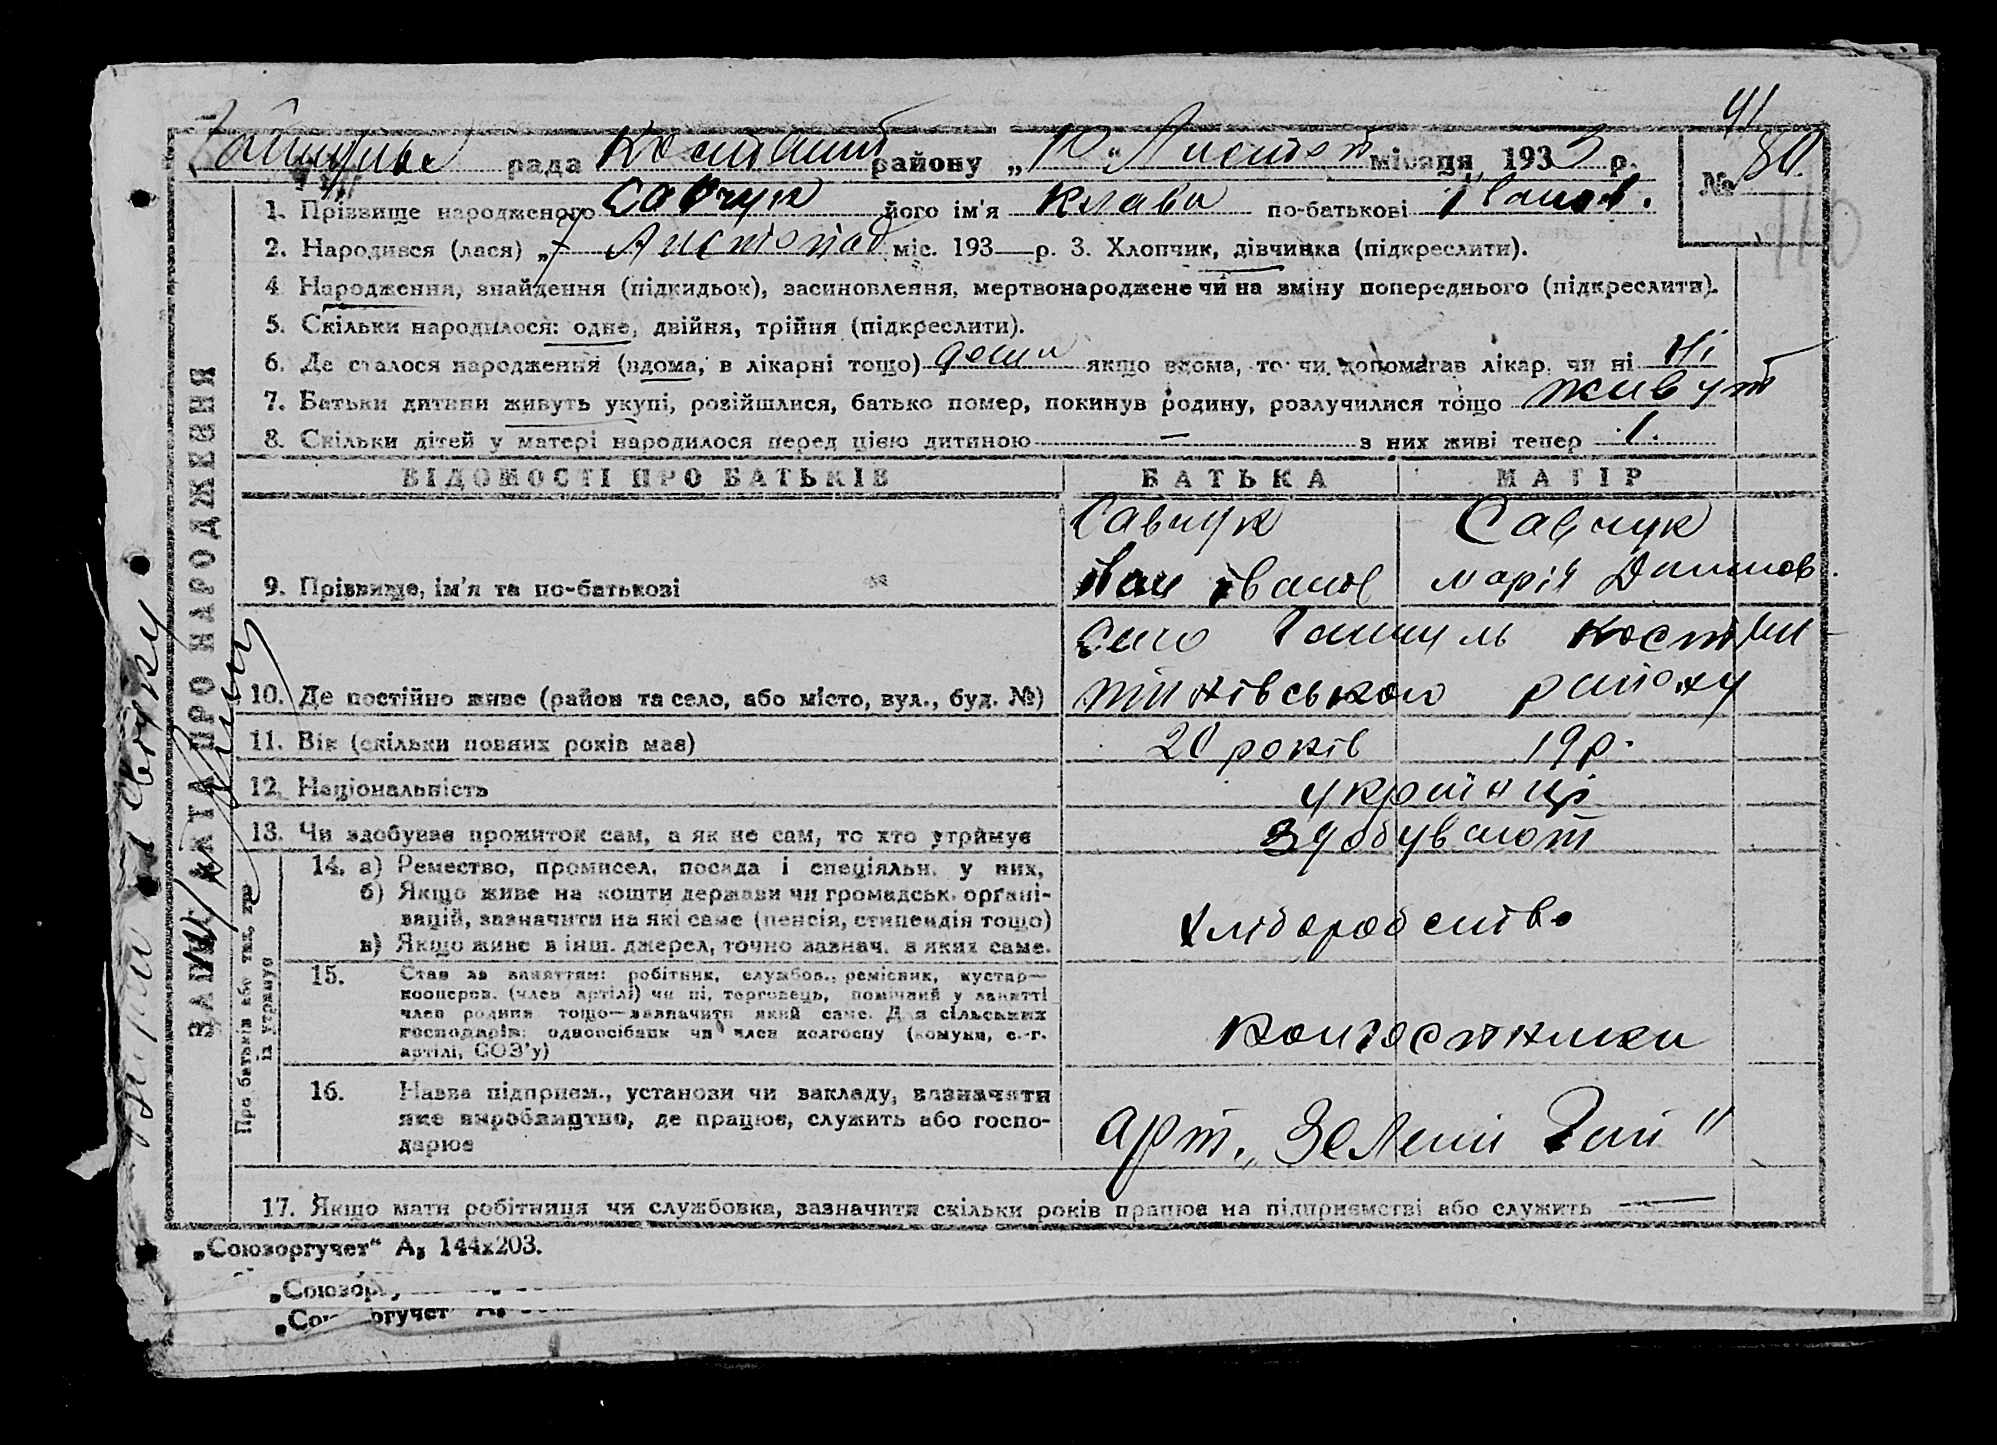 рада Костянт району „10“ Листоп місяця, 1933 р.
№ 80
1. Прізвище народженого Савчук його ім'я Клава по-батькові Іванов.
2. Народився (лася) „7 Листопад міс. 193—р. 3. Хлопчик, дівчинка (підкреслити).
4 Народження, знайдення (підкидьок), засиновлення, мертвонароджене чи на зміну попереднього (підкреслити).
5. Скільки народилося: одне, двійня, трійня (підкреслити).
6. Де сталося народження (вдома, в лікарні тощо) дома якщо вдома, то чи допомагав лікар, чи ні Ні
7. Батьки дитини живуть укупі, розійшлися, батько помер, покинув родину, розлучилися тощо живут
8. Скільки дітей у матері народилося перед цією дитиною — з них живі тепер 1.
ЗАПИС АКТА ПРО НАРОДЖЕННЯ
ВІДОМОСТІ ПРО БАТЬКІВ БАТЬКА МАТІР
Савчук Савчук
9. Прізвище, ім'я та по-батькові Іван Іванов Марія
село Костян-
10. Де постійно живе (район та село, або місто, вул., буд. №) тинівського району
11. Вік (скільки повних років має) 20 років 19 р.
12. Національність українці
13. Чи здобуває прожиток сам, а як не сам, то хто утримує здобувают
Про батьків або тих, хто
їх утримує
14. а) Ремество, промисел, посада і спеціяльн. у них,
б) Якщо живе на кошти держави чи громадськ. орґані-
зацій, зазначити на які саме (пенсія, стипендія тощо) хліборобство
в) Якщо живе в інш. джерел, точно зазнач. з яких саме.
15. Стан за заняттям: робітник, службов., ремісник, кустар—
кооперов. (член артілі) чи ні, торговець, помічний у занятті
член родини тощо—зазначити який саме. Для сільських
господарів: одноосібник чи член колгоспу (комуни, с.-г. колгоспники
артілі, СОЗ'у)
16. Назва підприєм., установи чи закладу, зазначити
яке виробництво, де працює, служить або госпо- арт. „Зелений Гай"
дарює
17. Якщо мати робітниця чи службовка, зазначити скільки років працює на підприємстві або служить —
„Союзоргучет“ А₅ 144х203.